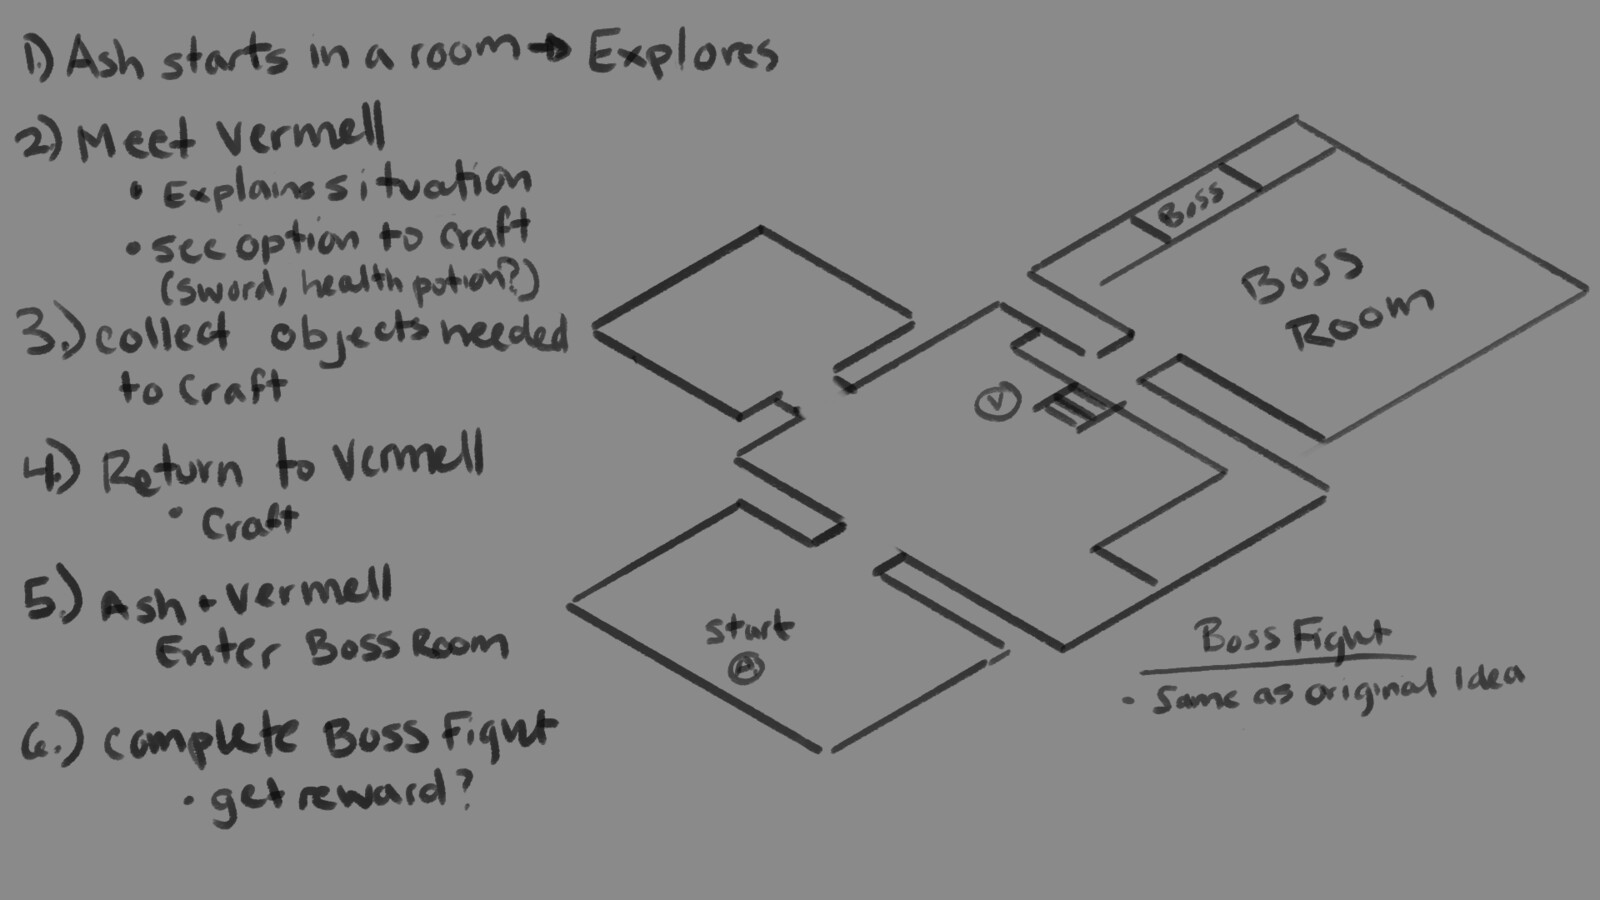 1) Ash starts in a room → Explores
2) Meet Vermell
• Explains situation
• see option to craft
(sword, health potion?)
3.) collect objects needed
to Craft
4.) Return to Vermell
• Craft
5.) Ash + Vermell
Enter Boss Room
6.) complete Boss Fight
• get reward?
Boss
Boss
Room
V
start
A
Boss Fight
• Same as original Idea